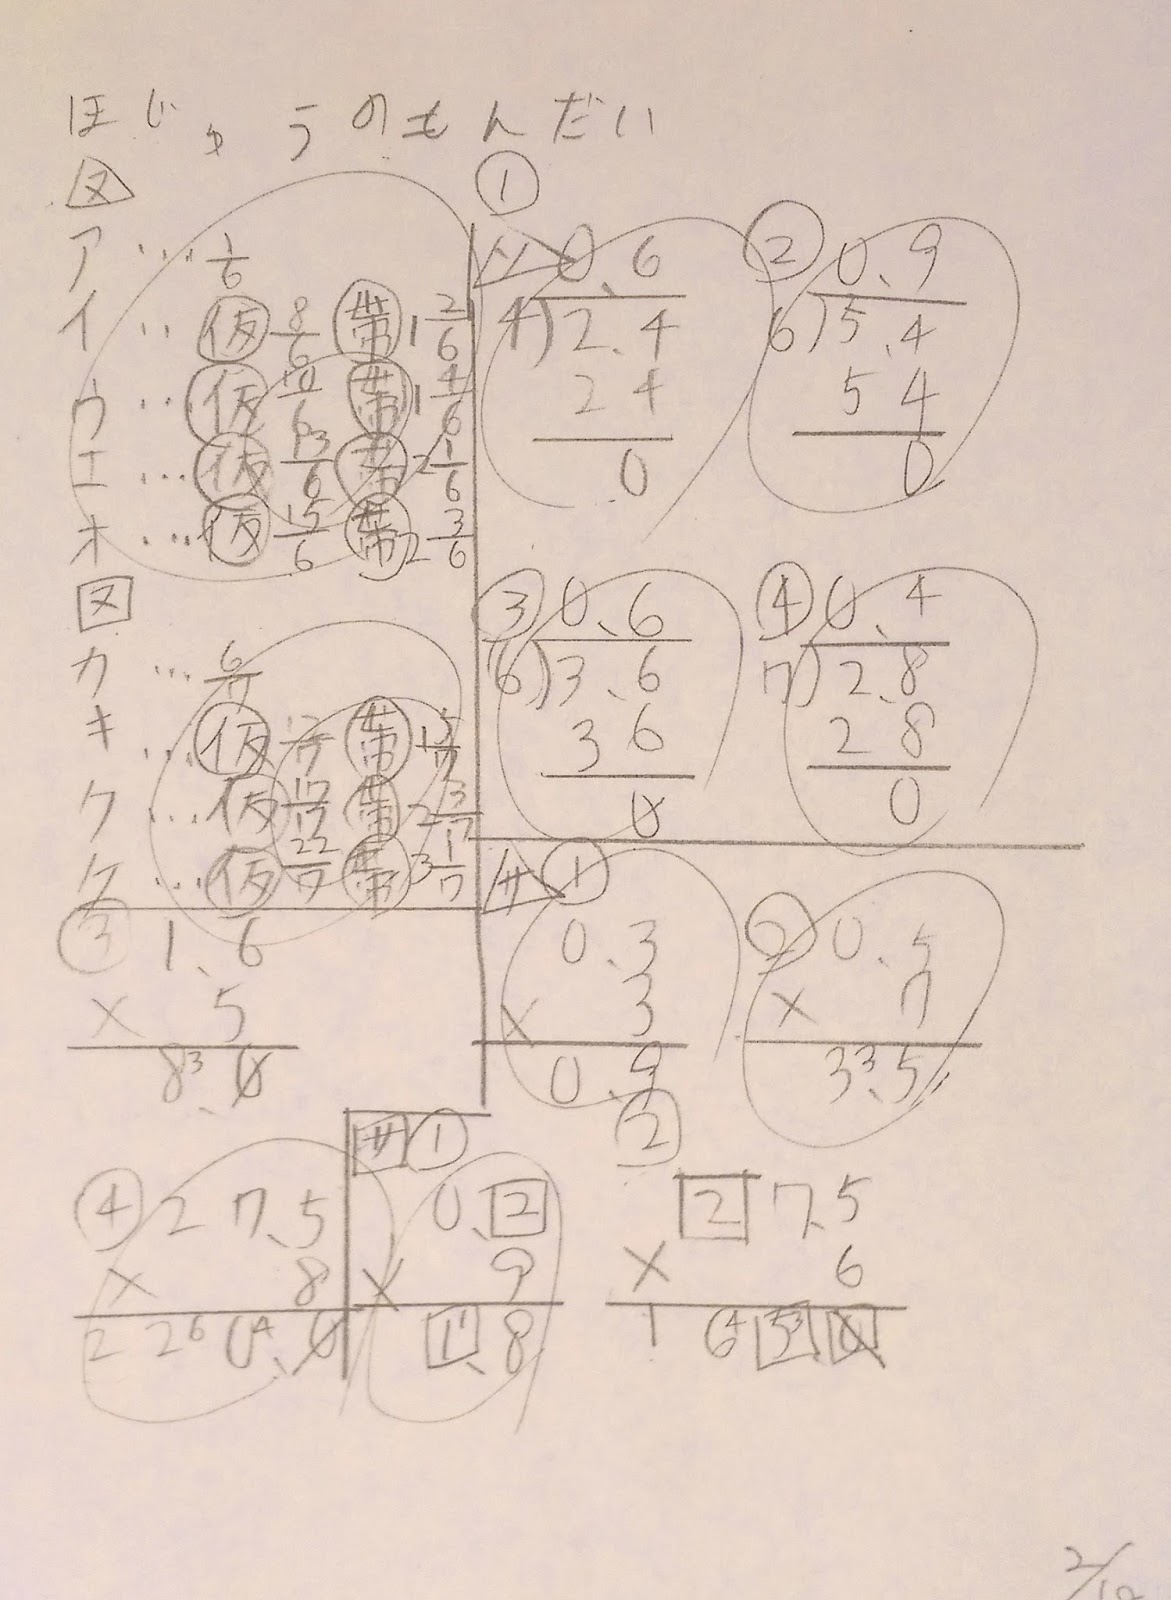 ほじゅうのもんだい
図
ア … 1/6
イ … 仮 8/6 帯 1 2/6
ウ … 仮 10/6 帯 1 4/6
エ … 仮 13/6 帯 2 1/6
オ … 仮 15/6 帯 2 3/6
図
カ … 6/7
キ … 仮 12/7 帯 1 5/7
ク … 仮 17/7 帯 2 3/7
ケ … 仮 22/7 帯 3 1/7
①
0.6
4)2.4
24
0
② 0.9
6)5.4
54
0
③ 0.6
6)3.6
36
0
④ 0.4
7)2.8
28
0
サ ①
0.3
× 3
0.9
② 0.5
× 7
3 3.5
③ 1.6
× 5
8 3.0
④ 27.5
× 8
2 2 6 0 4.0
サ ①
0.2
× 9
1.8
②
27.5
× 6
1 6 4 5 3 0
2/12